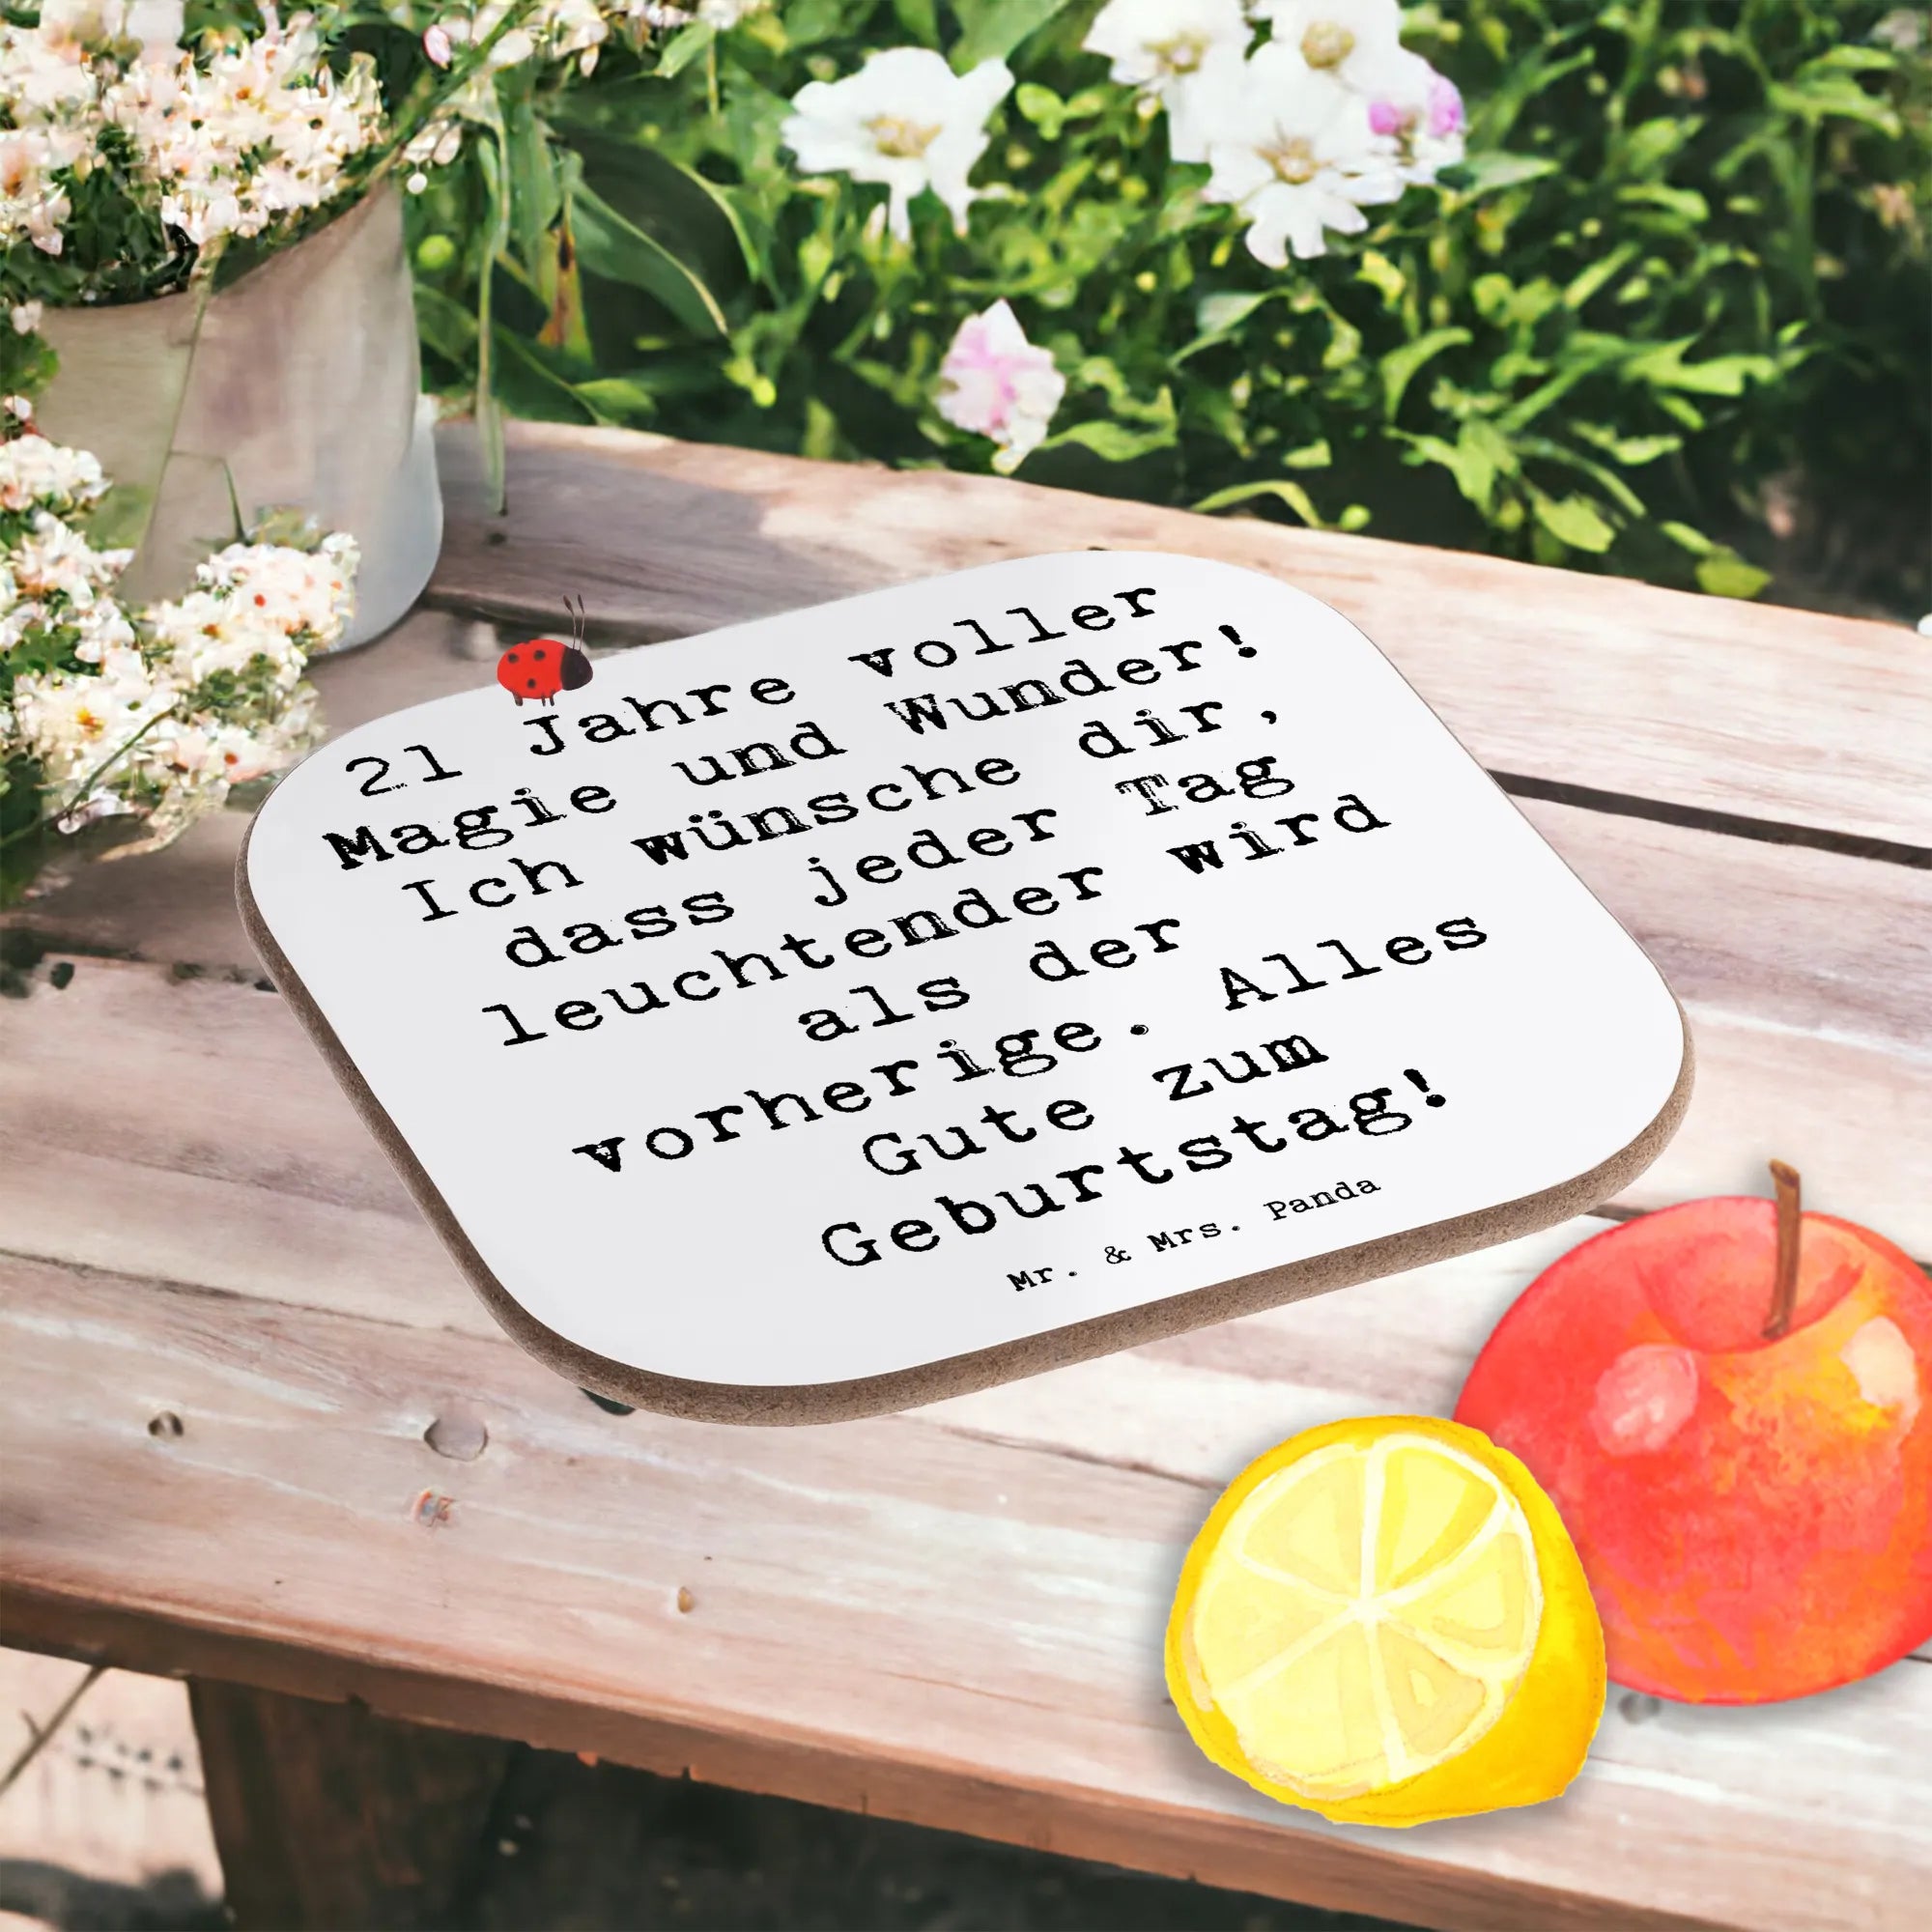 21 Jahre voller
Magie und Wunder!
Ich wünsche dir,
dass jeder Tag
leuchtender wird
als der
vorherige. Alles
Gute zum
Geburtstag!
Mr. & Mrs. Panda